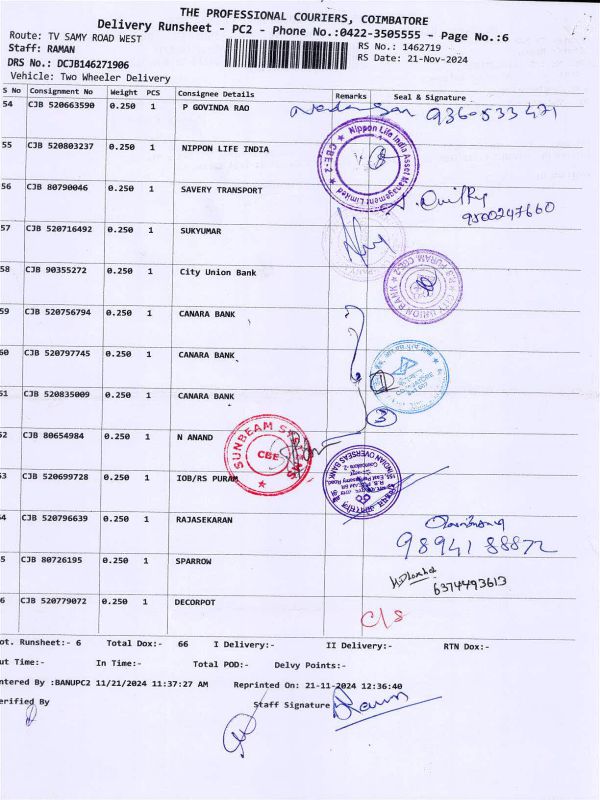 THE PROFESSIONAL COURIERS, COIMBATORE
Delivery Runsheet - PC2 - Phone No.:0422-3505555 - Page No.:6
Route: TV SAMY ROAD WEST
Staff: RAMAN
RS No.: 1462719
DRS No.: DCJB146271906
RS Date: 21-Nov-2024
Vehicle: Two Wheeler Delivery
S No Consignment No Weight PCS Consignee Details Remarks Seal & Signature
54 CJB 520663590 0.250 1 P GOVINDA RAO 9360533471
55 CJB 520803237 0.250 1 NIPPON LIFE INDIA
Nippon Life India Asset Management Limited
CBE-2
56 CJB 80790046 0.250 1 SAVERY TRANSPORT
9500247660
57 CJB 520716492 0.250 1 SUKYUMAR
58 CJB 90355272 0.250 1 City Union Bank
CITY UNION BANK R.S. PURAM, CBE-2
59 CJB 520756794 0.250 1 CANARA BANK
60 CJB 520797745 0.250 1 CANARA BANK
51 CJB 520835009 0.250 1 CANARA BANK
3
52 CJB 80654984 0.250 1 N ANAND
SUNBEAM
CBE
53 CJB 520699728 1 IOB/RS PURAM
INDIAN OVERSEAS BANK
Coimbatore -2
54 CJB 520796639 0.250 1 RAJASEKARAN
9894188872
5 CJB 80726195 0.250 1 SPARROW
6374493613
6 CJB 520779072 0.250 1 DECORPOT
C/S
ot. Runsheet:- 6 Total Dox:- 66 I Delivery:- II Delivery:- RTN Dox:-
ut Time:- In Time:- Total POD:- Delvy Points:-
ntered By :BANUPC2 11/21/2024 11:37:27 AM Reprinted On: 21-11-2024 12:36:40
erified By Staff Signature